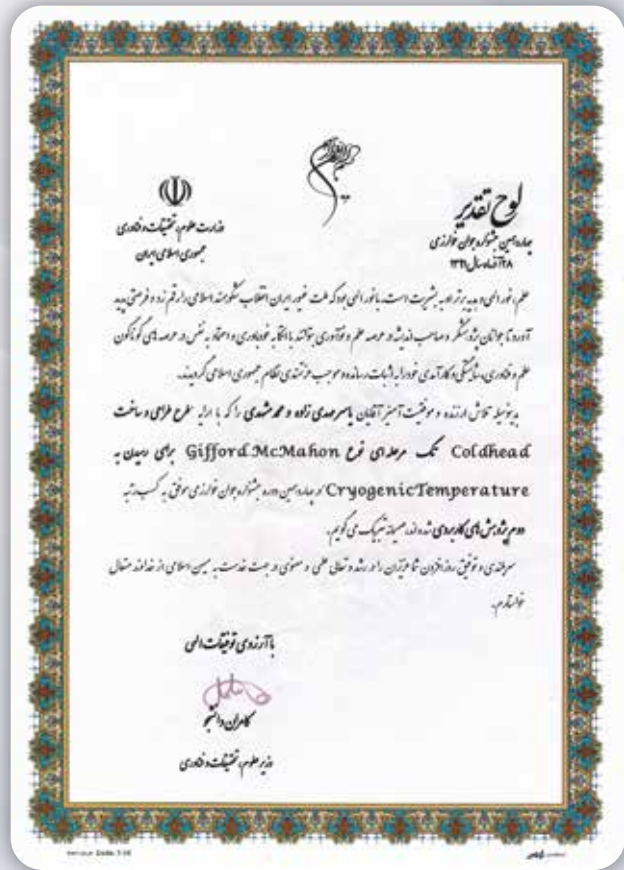 لوح تقدیر
چهاردهمین جشنواره جوان خوارزمی
۲۸ آذرماه سال ۱۳۹۱
وزارت علوم، تحقیقات و فناوری
جمهوری اسلامی ایران
علم، نور الهی و بشریت است. با نور الهی بود که ملت غیور ایران انقلاب شکوهمند اسلامی را رقم زد و فرصتی پدید
آورد تا جوانان پژوهشگر و صاحب اندیشه در عرصه علم و نوآوری بتوانند با اتکا به خودباوری و اعتماد به نفس در عرصه های گوناگون
علم و فناوری، شایستگی و کارآمدی خود را به اثبات رسانده و موجب خرسندی نظام جمهوری اسلامی گردیدند.
بدینوسیله تلاش ارزنده و موفقیت آمیز آقایان یاسر مهدی زاده و محمد مشهدی را که با ارایه طرح طراحی و ساخت
Coldhead تک مرحله ای نوع Gifford McMahon برای رسیدن به
Cryogenic Temperature در چهاردهمین دوره جشنواره جوان خوارزمی موفق به کسب رتبه
دوم پژوهش های کاربردی شده اند، صمیمانه تبریک می گویم.
سرفرازی و توفیق روزافزون شما عزیزان را در رشد و تعالی علمی و معنوی در جهت خدمت به میهن اسلامی از خداوند متعال
خواستارم.
با آرزوی توفیقات الهی
کامران دانشجو
وزیر علوم، تحقیقات و فناوری